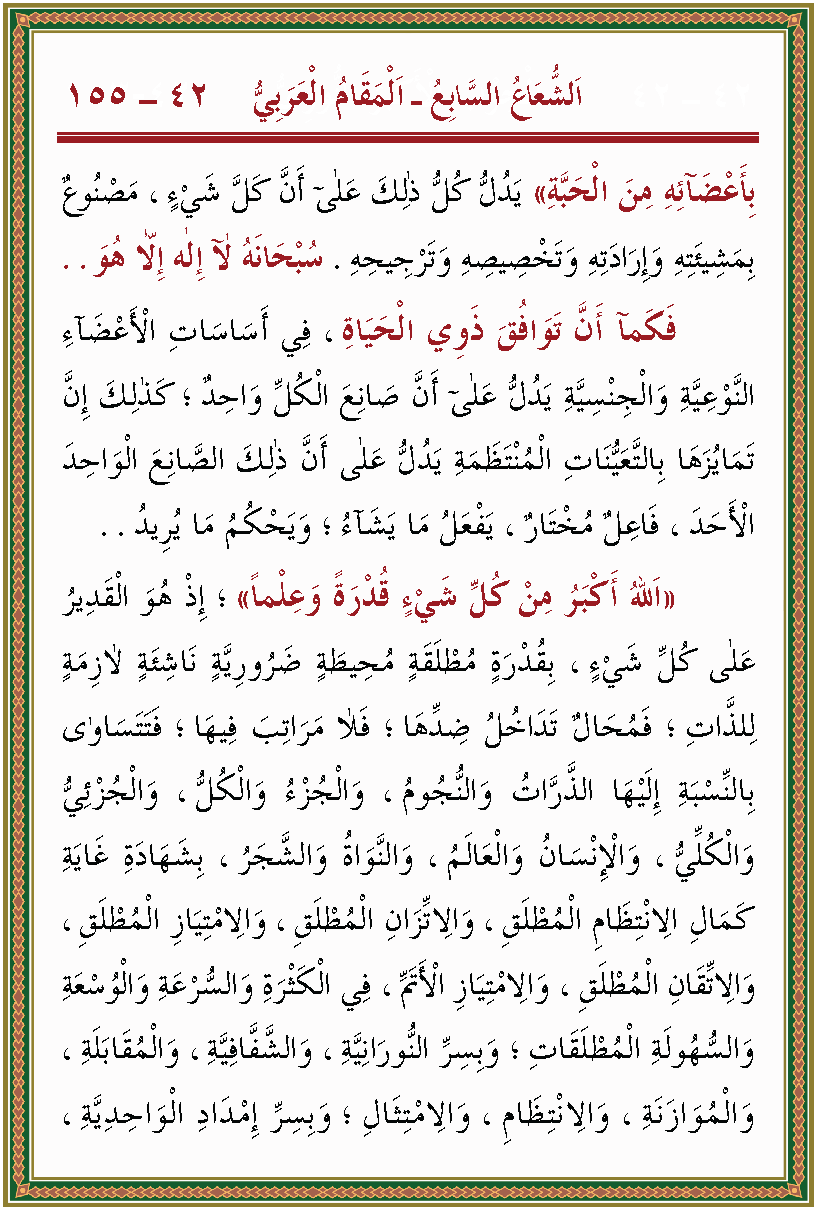 اَلشُّعَاعُ السَّابِعُ ـ اَلْمَقَامُ الْعَرَبِيُّ ٤٢ – ١٥٥
بِأَعْضَٓائِهِ مِنَ الْحَبَّةِ» يَدُلُّ كُلُّ ذٰلِكَ عَلٰىٓ أَنَّ كَلَّ شَيْءٍ ، مَصْنُوعٌ
بِمَشِيئَتِهِ وَإِرَادَتِهِ وَتَخْصِيصِهِ وَتَرْجِيحِهِ . سُبْحَانَهُ لَٓا إِلٰهَ إِلَّا هُوَ . .
فَكَمَٓا أَنَّ تَوَافُقَ ذَوِي الْحَيَاةِ ، فِي أَسَاسَاتِ الْأَعْضَٓاءِ
النَّوْعِيَّةِ وَالْجِنْسِيَّةِ يَدُلُّ عَلٰىٓ أَنَّ صَانِعَ الْكُلِّ وَاحِدٌ ؛ كَذٰلِكَ إِنَّ
تَمَايُزَهَا بِالتَّعَيُّنَاتِ الْمُنْتَظَمَةِ يَدُلُّ عَلٰى أَنَّ ذٰلِكَ الصَّانِعَ الْوَاحِدَ
الْأَحَدَ ، فَاعِلٌ مُخْتَارٌ ، يَفْعَلُ مَا يَشَٓاءُ ؛ وَيَحْكُمُ مَا يُرِيدُ . .
«اَللّٰهُ أَكْبَرُ مِنْ كُلِّ شَيْءٍ قُدْرَةً وَعِلْمًا» ؛ إِذْ هُوَ الْقَدِيرُ
عَلٰى كُلِّ شَيْءٍ ، بِقُدْرَةٍ مُطْلَقَةٍ مُحِيطَةٍ ضَرُورِيَّةٍ نَاشِئَةٍ لَازِمَةٍ
لِلذَّاتِ ؛ فَمُحَالٌ تَدَاخُلُ ضِدِّهَا ؛ فَلَا مَرَاتِبَ فِيهَا ؛ فَتَتَسَاوٰى
بِالنِّسْبَةِ إِلَيْهَا الذَّرَّاتُ وَالنُّجُومُ ، وَالْجُزْءُ وَالْكُلُّ ، وَالْجُزْئِيُّ
وَالْكُلِّيُّ ، وَالْإِنْسَانُ وَالْعَالَمُ ، وَالنَّوَاةُ وَالشَّجَرُ ، بِشَهَادَةِ غَايَةِ
كَمَالِ الِانْتِظَامِ الْمُطْلَقِ ، وَالِاتِّزَانِ الْمُطْلَقِ ، وَالِامْتِيَازِ الْمُطْلَقِ ،
وَالِاتِّقَانِ الْمُطْلَقِ ، وَالِامْتِيَازِ الْأَتَمِّ ، فِي الْكَثْرَةِ وَالسُّرْعَةِ وَالْوُسْعَةِ
وَالسُّهُولَةِ الْمُطْلَقَاتِ ؛ وَبِسِرِّ النُّورَانِيَّةِ ، وَالشَّفَّافِيَّةِ ، وَالْمُقَابَلَةِ ،
وَالْمُوَازَنَةِ ، وَالِانْتِظَامِ ، وَالِامْتِثَالِ ؛ وَبِسِرِّ إِمْدَادِ الْوَاحِدِيَّةِ ،